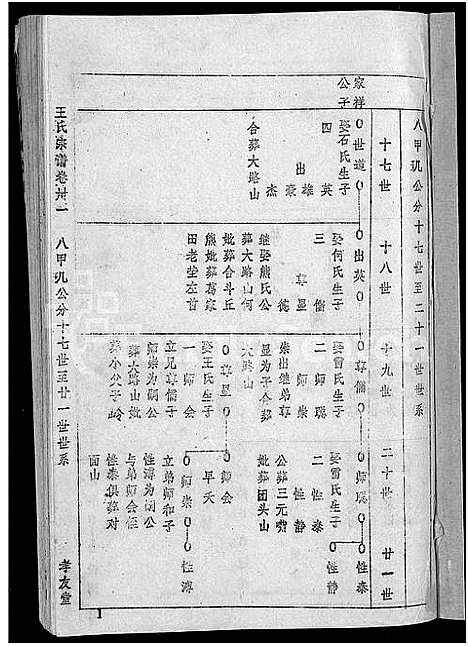 八甲玑公分十七世至二十一世世系
十七世
十八世
十九世
二十世
廿一世
家祥公子
世道
娶石氏生子
四 英
出雄
豪
杰
合葬大路山
出英
娶何氏生子
三 儒
尊显
德
继娶熊氏公
葬大路山何
妣葬合斗丘
熊妣葬葛家
田老堂左首
尊儒
娶雷氏生子
二 师琨
师崇
崇出继弟尊
显为子合葬
大路山
尊显
娶王氏生子
一 师会
立兄尊儒子
师崇为嗣公
葬大路山妣
葬小父子岭
师琨
娶雷氏生子
二 性泰
性静
公葬三元嘴
妣葬团头山
师会
早夭
师崇
立弟师和子
性溥为嗣公
与弟师会侄
性泰俱葬对
面山
性泰
性静
性溥
王氏宗谱卷卅一 八甲玑公分十七世至廿一世世系
孝友堂
1